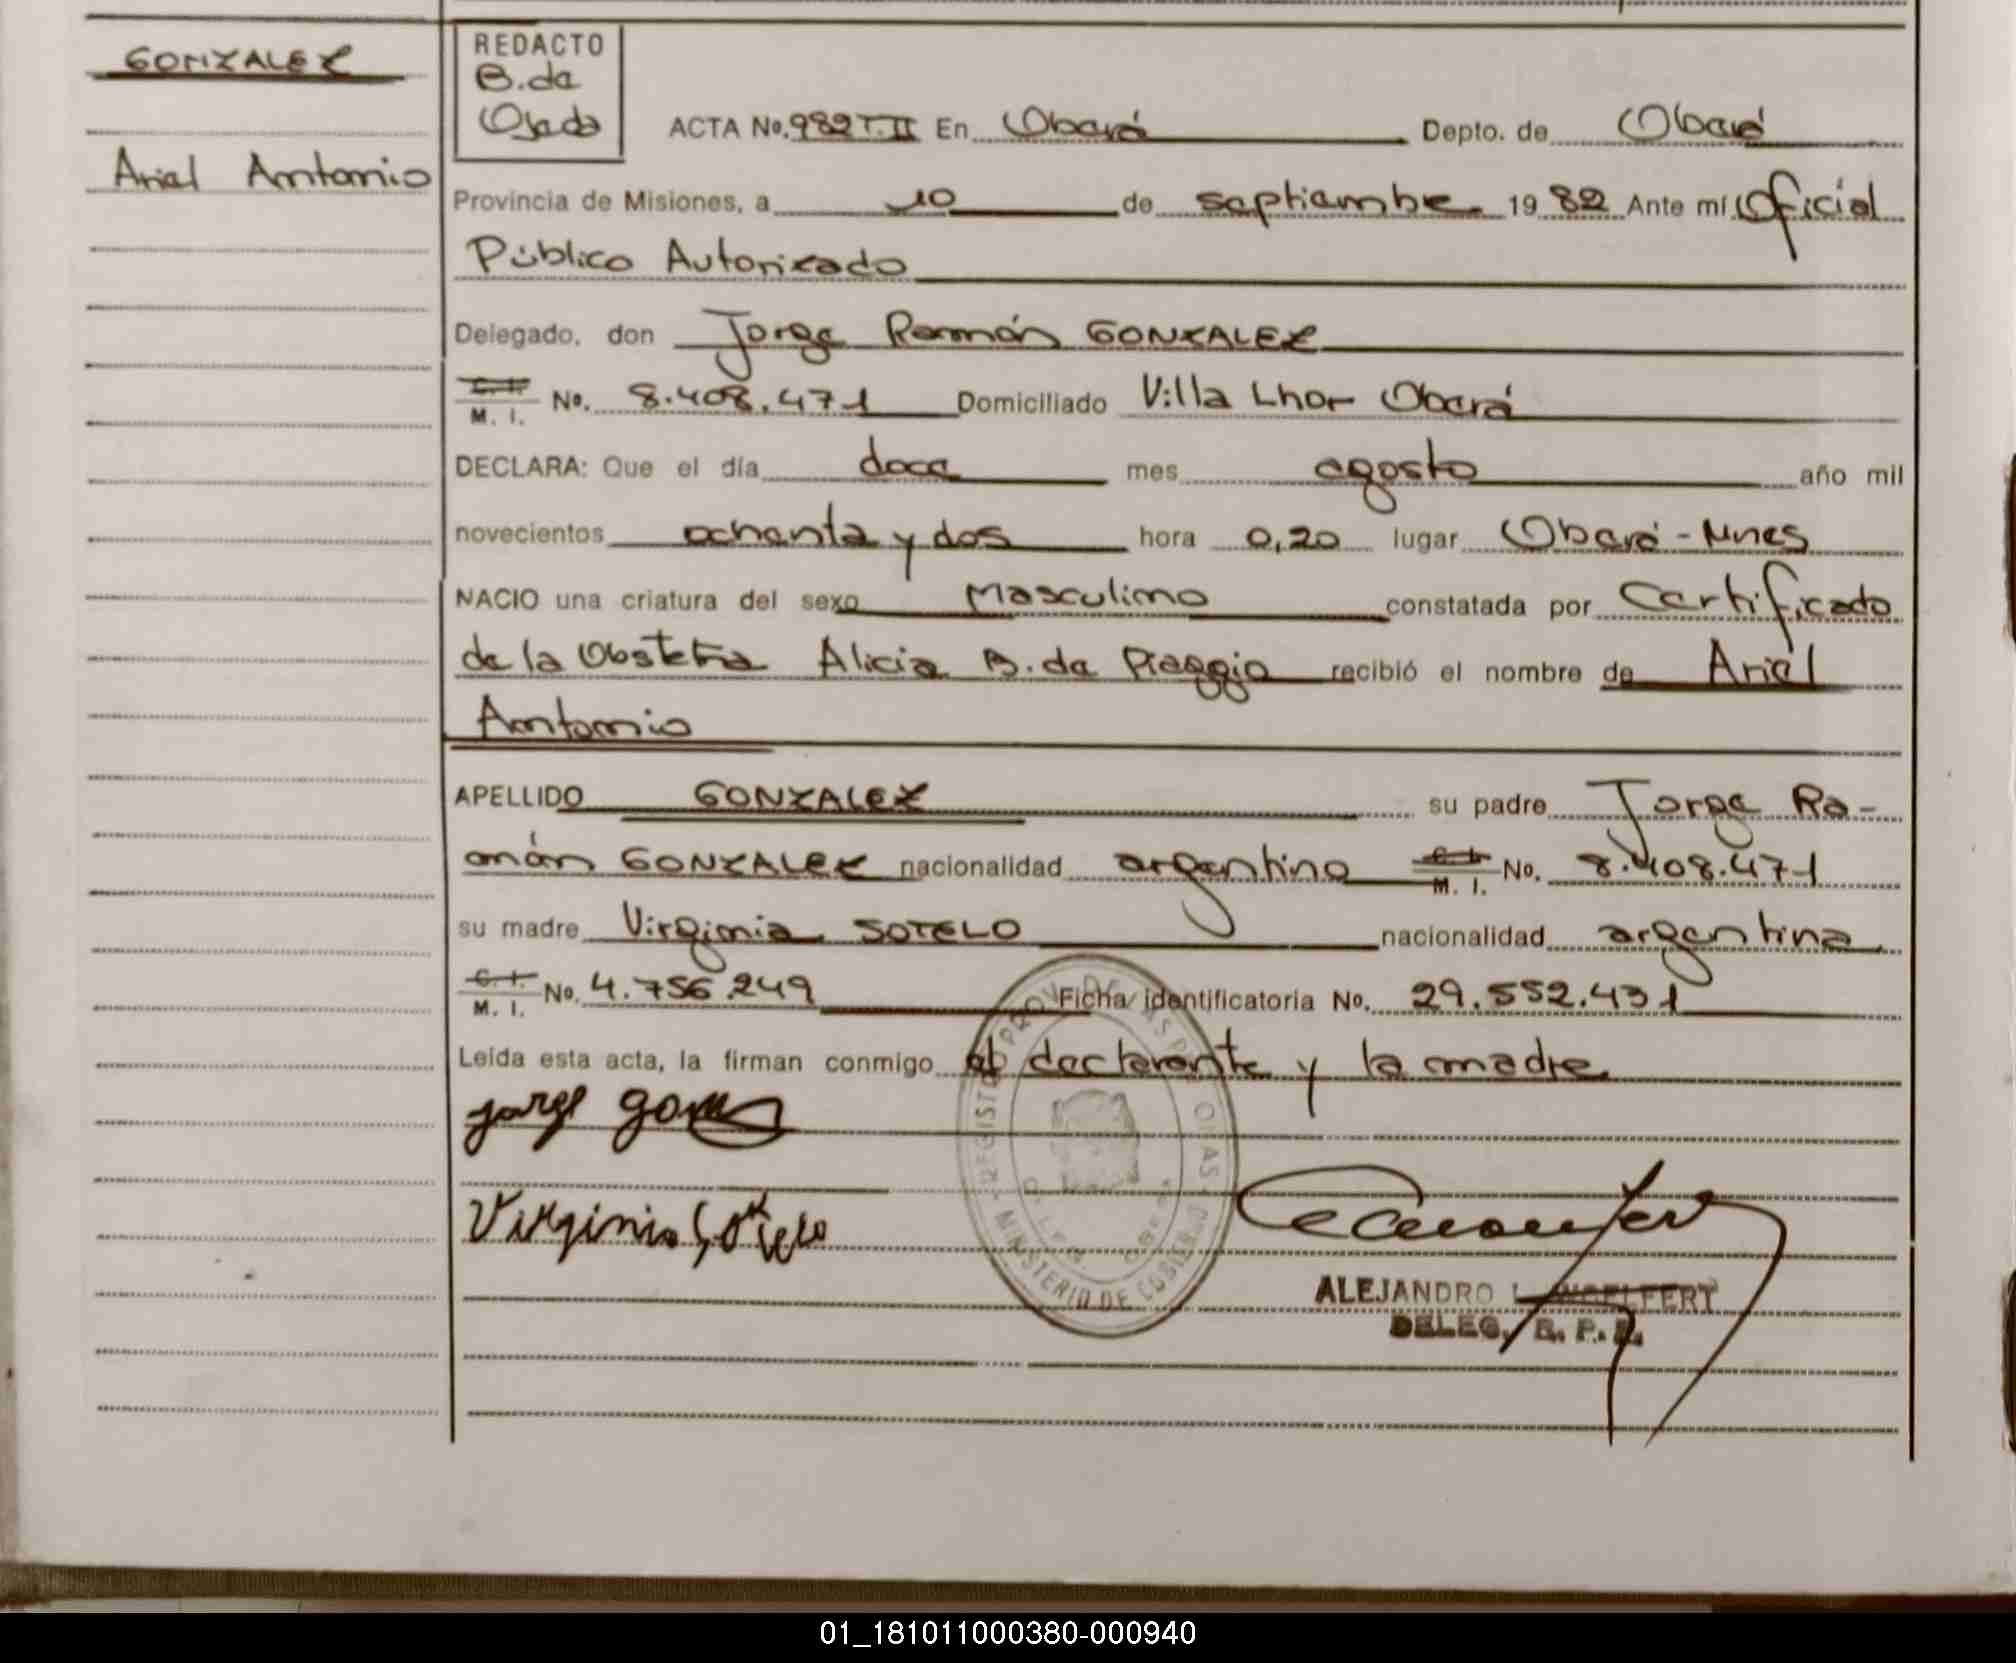 GONZALEZ
Ariel Antonio
REDACTO
B. de
Ojeda
ACTA No. 982 T. II En Oberá Depto. de Oberá
Provincia de Misiones, a 10 de septiembre 19 82 Ante mí Oficial
Público Autorizado
Delegado, don Jorge Ramón GONZALEZ
C. I.
M. I. No. 8.408.471 Domiciliado Villa Lhor Oberá
DECLARA: Que el día doce mes agosto año mil
novecientos ochenta y dos hora 0,20 lugar Oberá - Mnes
NACIO una criatura del sexo Masculino constatada por Certificado
de la Obstetra Alicia B. de Piaggio recibió el nombre de Ariel
Antonio
APELLIDO GONZALEZ su padre Jorge Ra-
món GONZALEZ nacionalidad argentino C. I. M. I. No. 8.408.471
su madre Virginia SOTELO nacionalidad argentina
C. I.
M. I. No. 4.756.249 Ficha identificatoria No. 29.552.431
Leída esta acta, la firman conmigo el declarante y la madre
jorge
Virginia Sotelo
REGISTRO PROV. DE LAS PERSONAS
MINISTERIO DE GOBIERNO
ALEJANDRO
DELEG. R. P. P.
01_181011000380-000940